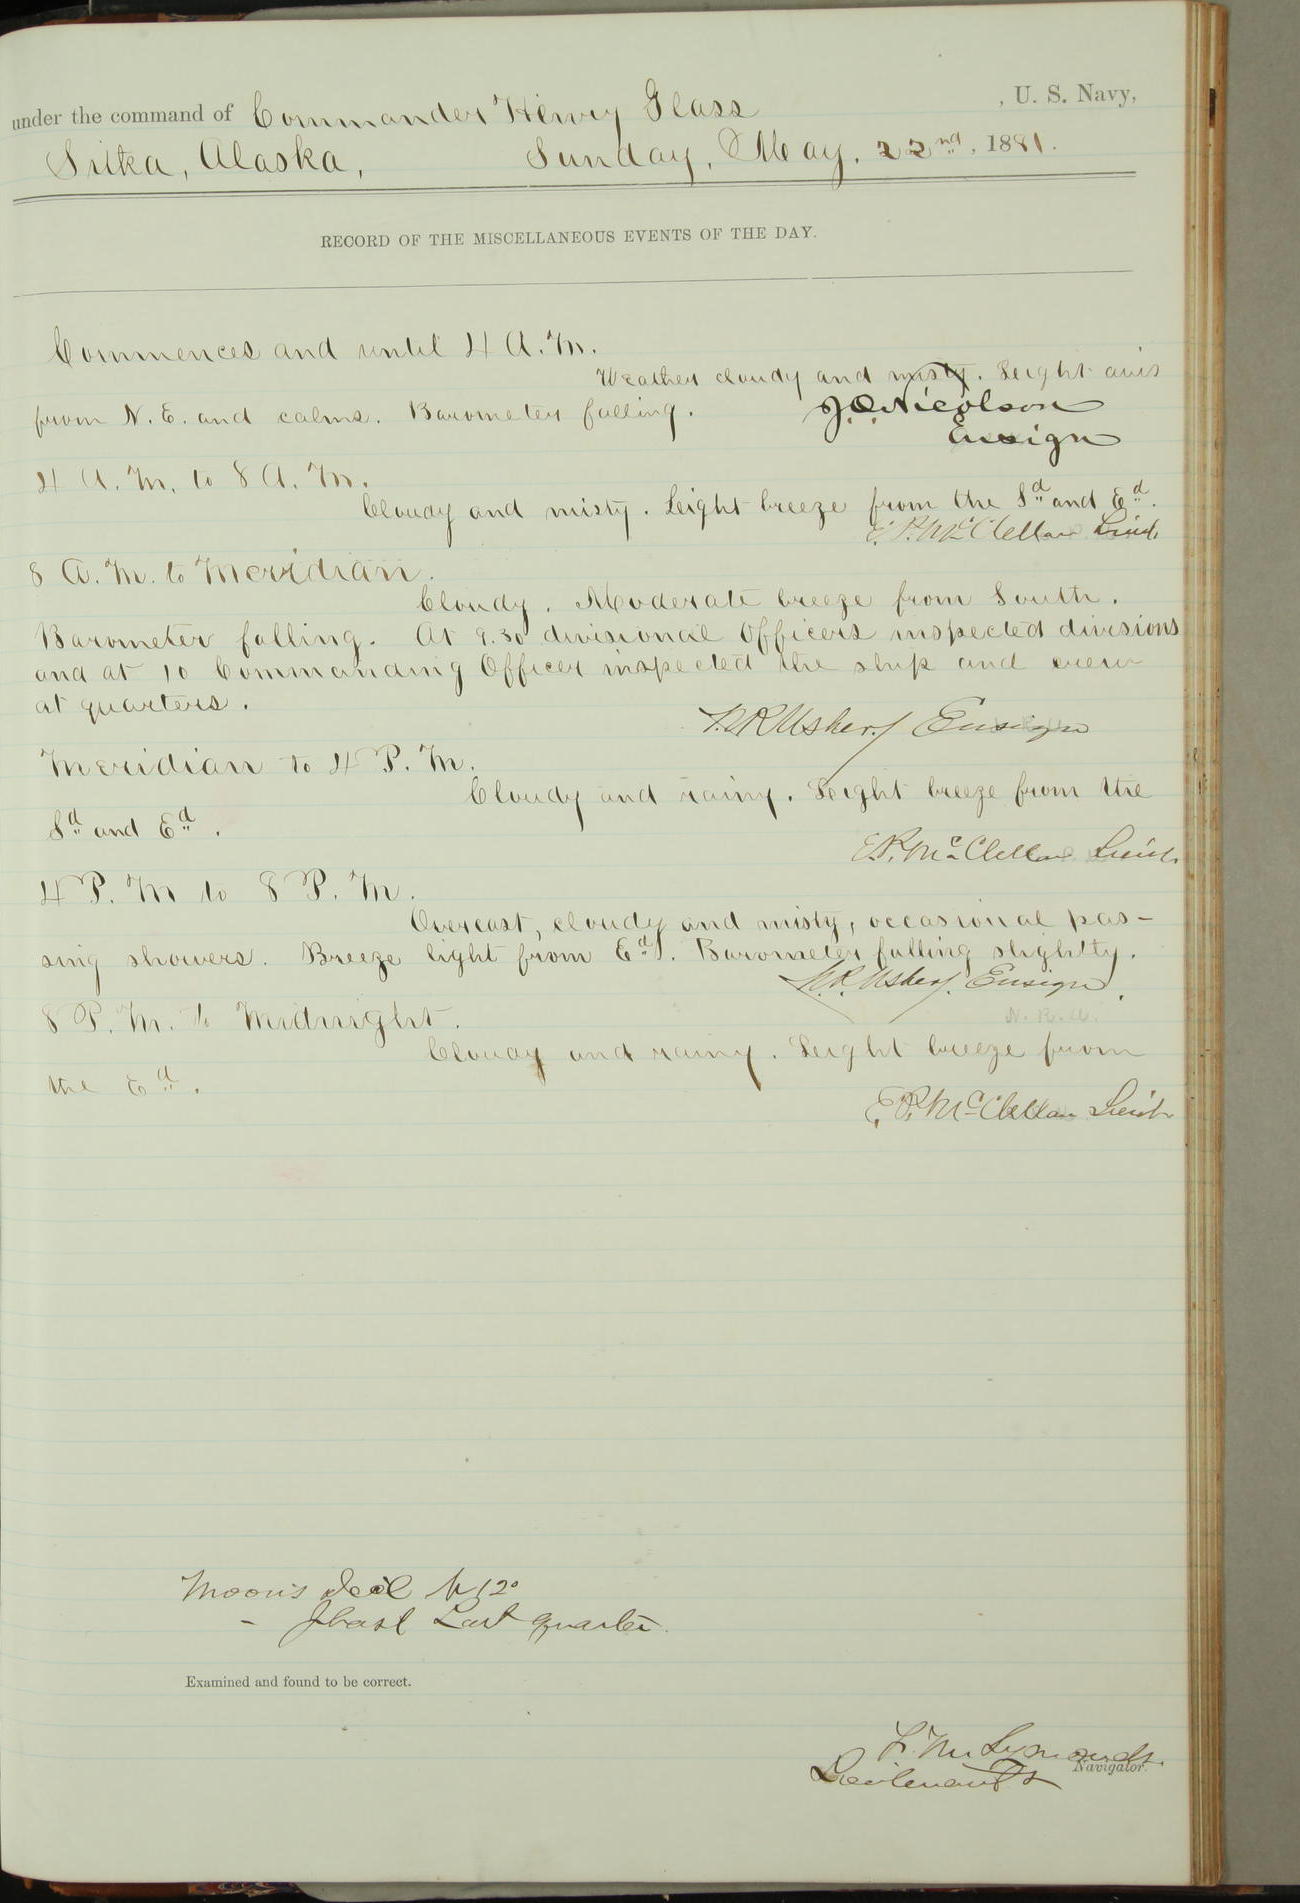 under the command of Commander Henry Glass , U. S. Navy,
Sitka, Alaska, Sunday, May, 22nd, 1881.
RECORD OF THE MISCELLANEOUS EVENTS OF THE DAY.
Commences and until 4 A.M.
Weather cloudy and misty. Light airs
from N.E. and calms. Barometer falling. J.O. Nicolson
Ensign
4 A.M. to 8 A.M.
Cloudy and misty. Light breeze from the Sd and Ed.
E.P. McClellan Lieut.
8 A.M. to Meridian.
Cloudy. Moderate breeze from South.
Barometer falling. At 9.30 divisional Officers inspected divisions
and at 10 Commanding Officer inspected the ship and crew
at quarters.
N.R. Usher / Ensign
Meridian to 4 P.M.
Cloudy and rainy. Light breeze from the
Sd and Ed.
E.P. McClellan Lieut.
4 P.M to 8 P.M.
Overcast, cloudy and misty, occasional pas-
sing showers. Breeze light from Ed. Barometer falling slightly.
N.R. Usher / Ensign.
8 P.M. to Midnight.
Cloudy and rainy. Light breeze from
the Ed.
E.P. McClellan Lieut
Moon's Decl 12°
- Phase Last quarter.
Examined and found to be correct.
F. M. Symonds.
Lieutenant Navigator.